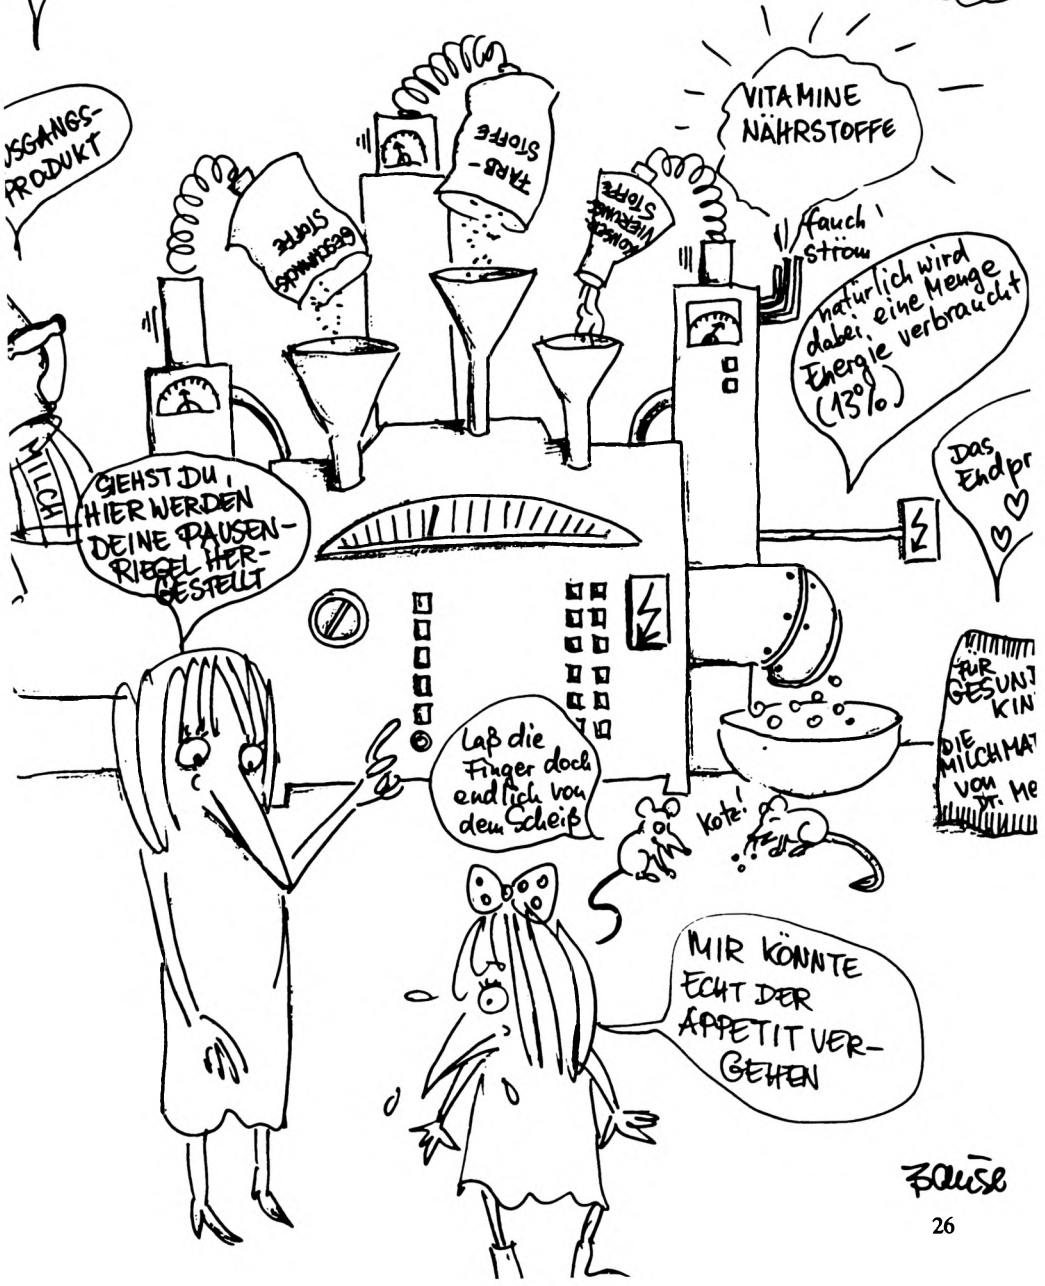 USGANGS-
PRODUKT
GESCHMACKS
STOFFE
FARB-
STOFFE
KONSER
VIERUNGS
STOFFE
VITAMINE
NÄHRSTOFFE
fauch!
ström
natürlich wird
dabei eine Menge
Energie verbraucht
(13%)
Das
Endpr
MILCH
SIEHST DU,
HIER WERDEN
DEINE PAUSEN-
RIEGEL HER-
GESTELLT
Laß die
Finger doch
endlich von
dem Scheiß
Kotz!
FÜR
GESUND
KIN
DIE
MILCHMAT
von
Dr. Me
MIR KÖNNTE
ECHT DER
APPETIT VER-
GEHEN
Bause
26